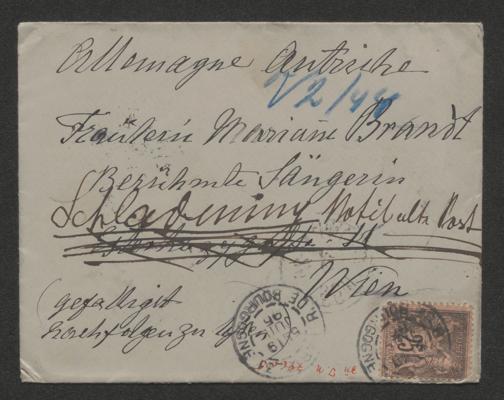 Allemagne Autriche
V2/44
Fräulein Mariane Brandt
Berühmte Sängerin
Schladming Hotel alte Post
11
Wien
gefälligst
nachfolgen zu
R. DE BOURGOGNE
25